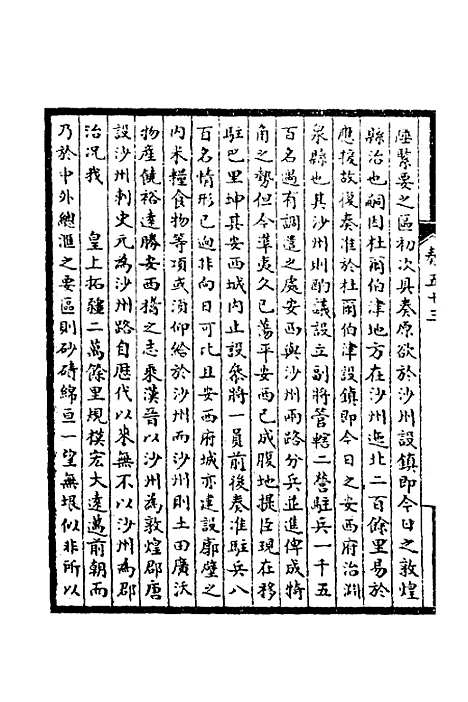 陲緊要之區初次具奏原欲於沙州設鎮即今日之敦煌
縣治也嗣因杜爾伯津地方在沙州迤北二百餘里易於
應援故復奏准於杜爾伯津設鎮即今日之安西府治淵
泉縣也其沙州則酌議設立副將管轄二營駐兵一千五
百名遇有調遣之處安西與沙州兩路分兵並進俾成犄
角之勢但今準夷久已蕩平安西已成腹地提臣現在移
駐巴里坤其安西城內止設叅將一員前後奏准駐兵八
百名情形已迥非向日可比且安西府城亦建設廓壁之
內米糧食物等項或須仰給於沙州而沙州則土田廣沃
物產饒裕遠勝安西稽之志乘漢晉以沙州為敦煌郡唐
設沙州刺史元為沙州路自歷代以來無不以沙州為郡
治况我　皇上拓疆二萬餘里規模宏大遠邁前朝而
乃於中外總滙之要區則砂磧綿亘一望無垠似非所以
卷五十三